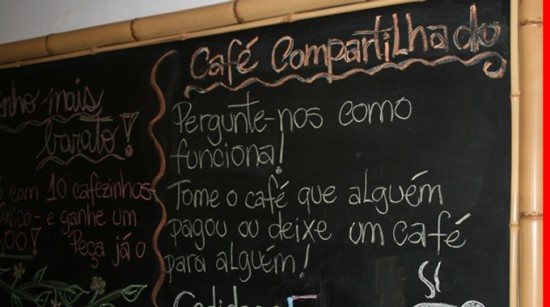 nho mais
barato!
com 10 cafezinhos
e ganhe um
Peça já o
Café Compartilhado
Pergunte-nos como
funciona!
Tome o café que alguém
pagou ou deixe um café
para alguém!